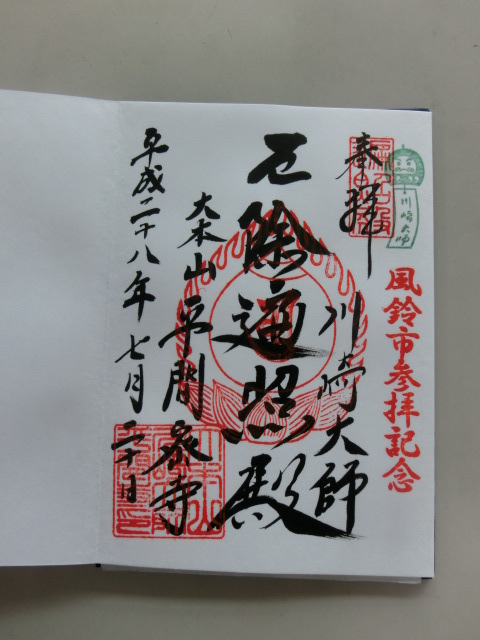 川崎大師
風鈴市参拝記念
奉拝
川崎大師
厄除遍照殿
大本山平間寺
平成二十八年七月二十日